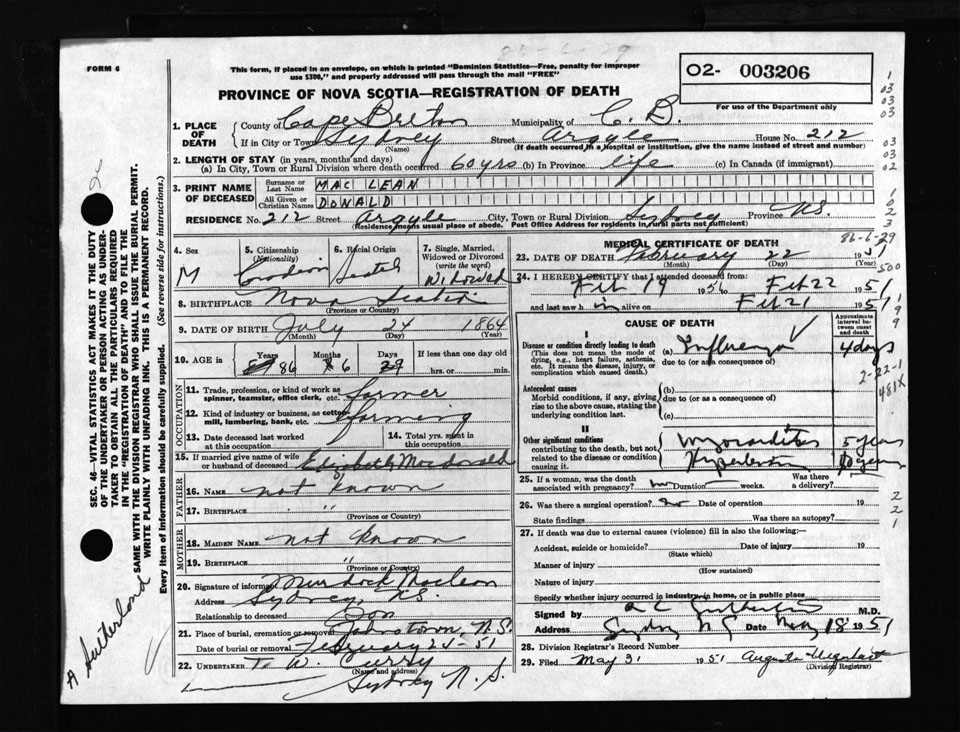 86-6-29
FORM 6
This form, if placed in an envelope, on which is printed "Dominion Statistics—Free, penalty for improper
use $300," and properly addressed will pass through the mail "FREE"
02- 003206
For use of the Department only
PROVINCE OF NOVA SCOTIA—REGISTRATION OF DEATH
1. PLACE OF DEATH
County of Cape Breton Municipality of C. B.
If in City or Town Sydney (Name) Street Argyle House No. 212
(If death occurred in a Hospital or institution, give the name instead of street and number)
2. LENGTH OF STAY (in years, months and days)
(a) In City, Town or Rural Division where death occurred 60 yrs (b) In Province life (c) In Canada (if immigrant)
3. PRINT NAME OF DECEASED
Surname or Last Name MAC LEAN
All Given or Christian Names DONALD
RESIDENCE No. 212 Street Argyle City, Town or Rural Division Sydney Province N.S.
(Residence means usual place of abode. Post Office Address for residents in rural parts not sufficient)
4. Sex M
5. Citizenship (Nationality) Canadian
6. Racial Origin Scotch
7. Single, Married, Widowed or Divorced (write the word) Widowed
8. BIRTHPLACE Nova Scotia
(Province or Country)
9. DATE OF BIRTH July 24 1864
(Month) (Day) (Year)
10. AGE in Years 86 Months 6 Days 29 If less than one day old hrs. or min.
OCCUPATION
11. Trade, profession, or kind of work as spinner, teamster, office clerk, etc. farmer
12. Kind of industry or business, as cotton-mill, lumbering, bank, etc. farming
13. Date deceased last worked at this occupation
14. Total yrs. spent in this occupation
15. If married give name of wife or husband of deceased Elizabeth Macdonald
FATHER
16. NAME not known
17. BIRTHPLACE "
(Province or Country)
MOTHER
18. MAIDEN NAME not known
19. BIRTHPLACE "
(Province or Country)
20. Signature of informant Murdock Maclean
Address Sydney, N.S.
Relationship to deceased Son
21. Place of burial, cremation or removal Johnstown, N.S.
Date of burial or removal February 24-51
22. UNDERTAKER T. W. Curry
(Name and address)
Sydney N. S.
MEDICAL CERTIFICATE OF DEATH
86-6-29
23. DATE OF DEATH February 22 1951
(Month) (Day) (Year)
24. I HEREBY CERTIFY that I attended deceased from:
Feb 19 1951 to Feb 22 1951
and last saw him alive on Feb 21 1951
CAUSE OF DEATH
Approximate interval between onset and death
I
Disease or condition directly leading to death (a) Influenza 4 days
(This does not mean the mode of dying, e.g., heart failure, asthenia, etc. It means the disease, injury, or complication which caused death.)
due to (or as a consequence of)
2-22-1
481X
Antecedent causes
Morbid conditions, if any, giving rise to the above cause, stating the underlying condition last.
(b)
due to (or as a consequence of)
(c)
II
Other significant conditions contributing to the death, but not related to the disease or condition causing it.
Myocarditis 5 years
Hypertension 10 years
25. If a woman, was the death associated with pregnancy? no Duration weeks. Was there a delivery?
26. Was there a surgical operation? no Date of operation 19
State findings Was there an autopsy?
27. If death was due to external causes (violence) fill in also the following:
Accident, suicide or homicide? Date of injury 19
(State which)
Manner of injury
(How sustained)
Nature of injury
Specify whether injury occurred in industry, in home, or in public place
Signed by M.D.
Address Sydney N S Date May 18 1951
28. Division Registrar's Record Number
29. Filed May 31 1951 Augusta
(Division Registrar)
SEC. 46—VITAL STATISTICS ACT MAKES IT THE DUTY
OF THE UNDERTAKER OR PERSON ACTING AS UNDER-
TAKER TO OBTAIN ALL THE PARTICULARS REQUIRED
IN THE "REGISTRATION OF DEATH" AND TO FILE THE
SAME WITH THE DIVISION REGISTRAR WHO SHALL ISSUE THE BURIAL PERMIT.
WRITE PLAINLY WITH UNFADING INK. THIS IS A PERMANENT RECORD.
Every item of information should be carefully supplied. (See reverse side for instructions.)
A Sutherland